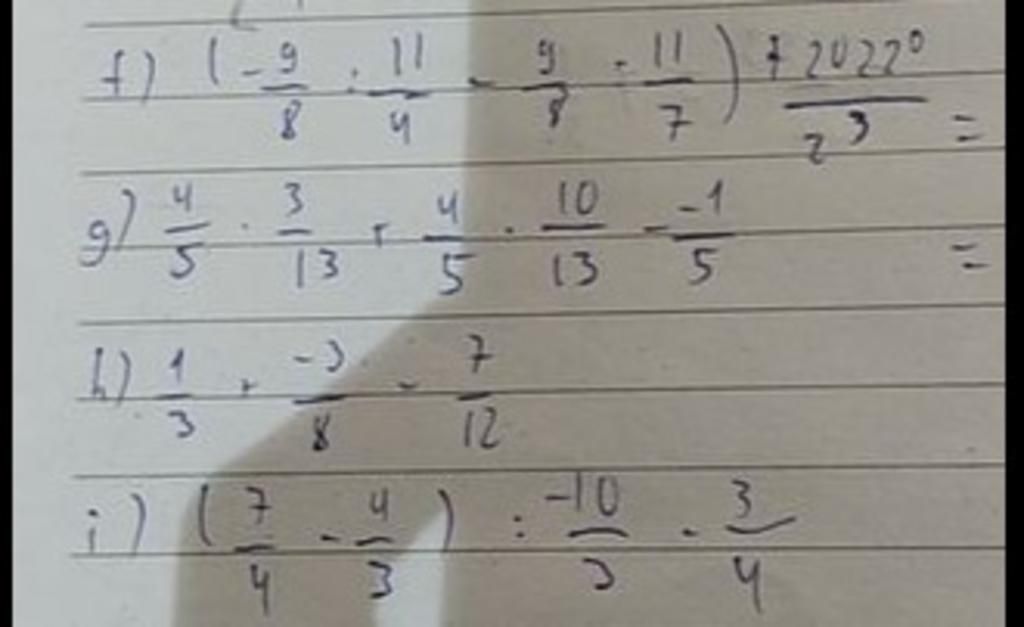 f) (-9/8 : 11/4 - 9/8 : 11/7) + 2022⁰/2³ =
g) 4/5 · 3/13 + 4/5 · 10/13 - -1/5 =
h) 1/3 + -3/8 - 7/12
i) (7/4 - 4/3) : -10/3 - 3/4